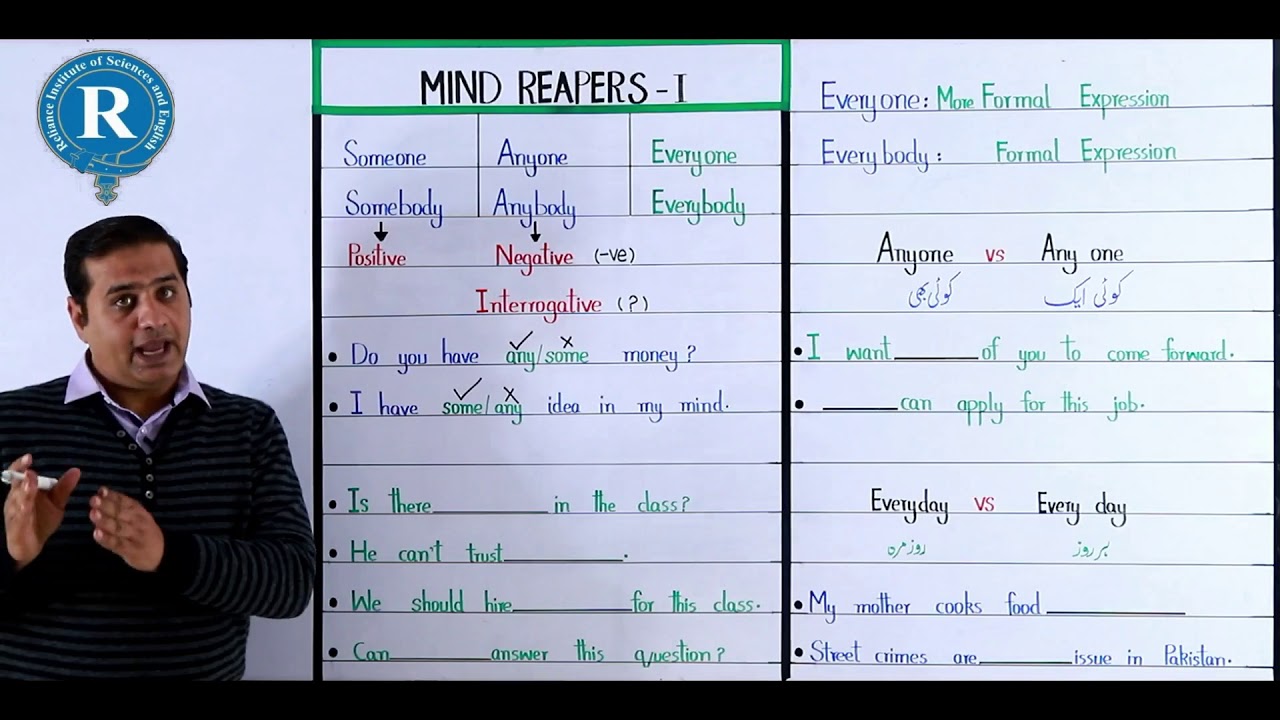 Reliance Institute of Sciences and English
R
MIND REAPERS - I
Someone Anyone Everyone
Somebody Anybody Everybody
Positive Negative (-ve)
Interrogative (?)
• Do you have any/some money?
✓ ×
• I have some/any idea in my mind.
✓ ×
• Is there__________in the class?
• He can't trust__________.
• We should hire__________for this class.
• Can__________answer this question?
Everyone: More Formal Expression
Everybody: Formal Expression
Anyone vs Any one
کوئی بھی کوئی ایک
• I want________of you to come forward.
• ________can apply for this job.
Everyday vs Every day
روزمرہ ہر روز
• My mother cooks food__________
• Street crimes are________issue in Pakistan.